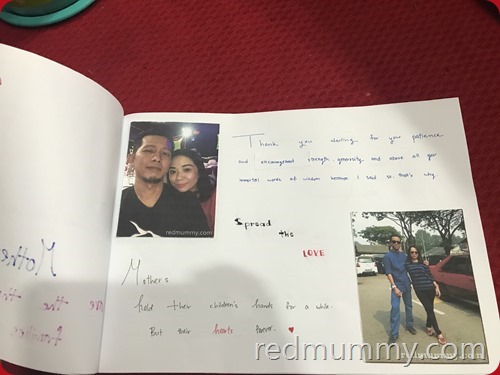 Thank you darling for your patience
and encouragement strength, generosity, and above all your
immortal words of wisdom because I said so, that's why.
Spread
the
LOVE
Mothers
hold their children's hands for a while.
But their hearts forever.
Mothe
redmummy.com
redmummy.com
redmummy.com